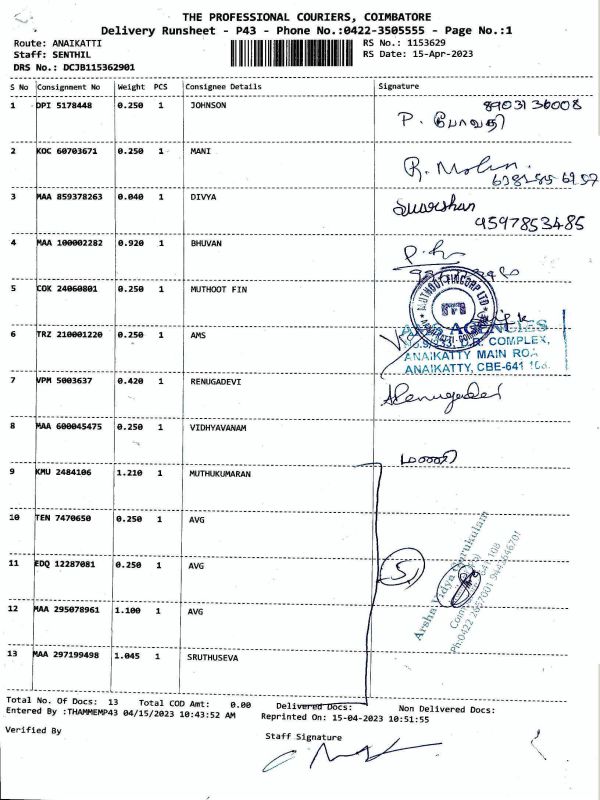 THE PROFESSIONAL COURIERS, COIMBATORE
Delivery Runsheet - P43 - Phone No.:0422-3505555 - Page No.:1
Route: ANAIKATTI RS No.: 1153629
Staff: SENTHIL RS Date: 15-Apr-2023
DRS No.: DCJB115362901
S No Consignment No Weight PCS Consignee Details Signature
1 DPI 5178448 0.250 1 JOHNSON 8903136008
P.
2 KOC 60703671 0.250 1 MANI
R. Mohn.
3 MAA 859378263 0.040 1 DIVYA
9597853485
4 MAA 100002282 0.920 1 BHUVAN
5 COK 24060801 0.250 1 MUTHOOT FIN MUTHOOT FINCORP LTD
6 TRZ 210001220 0.250 1 AMS AGENCIES
COMPLEX,
ANAIKATTY MAIN ROA
ANAIKATTY, CBE-641
7 VPM 5003637 0.420 1 RENUGADEVI
Renugadevi
8 MAA 600045475 0.250 1 VIDHYAVANAM
9 KMU 2484106 1.210 1 MUTHUKUMARAN
10 TEN 7470650 0.250 1 AVG
11 EDQ 12287081 0.250 1 AVG 5
12 MAA 295078961 1.100 1 AVG
Arsha Vidya Gurukulam
641 108
Ph:0422 2657001 9442646701
13 MAA 297199498 1.045 1 SRUTHUSEVA
Total No. Of Docs: 13 Total COD Amt: 0.00 Delivered Docs: Non Delivered Docs:
Entered By :THAMMEMP43 04/15/2023 10:43:52 AM Reprinted On: 15-04-2023 10:51:55
Verified By Staff Signature